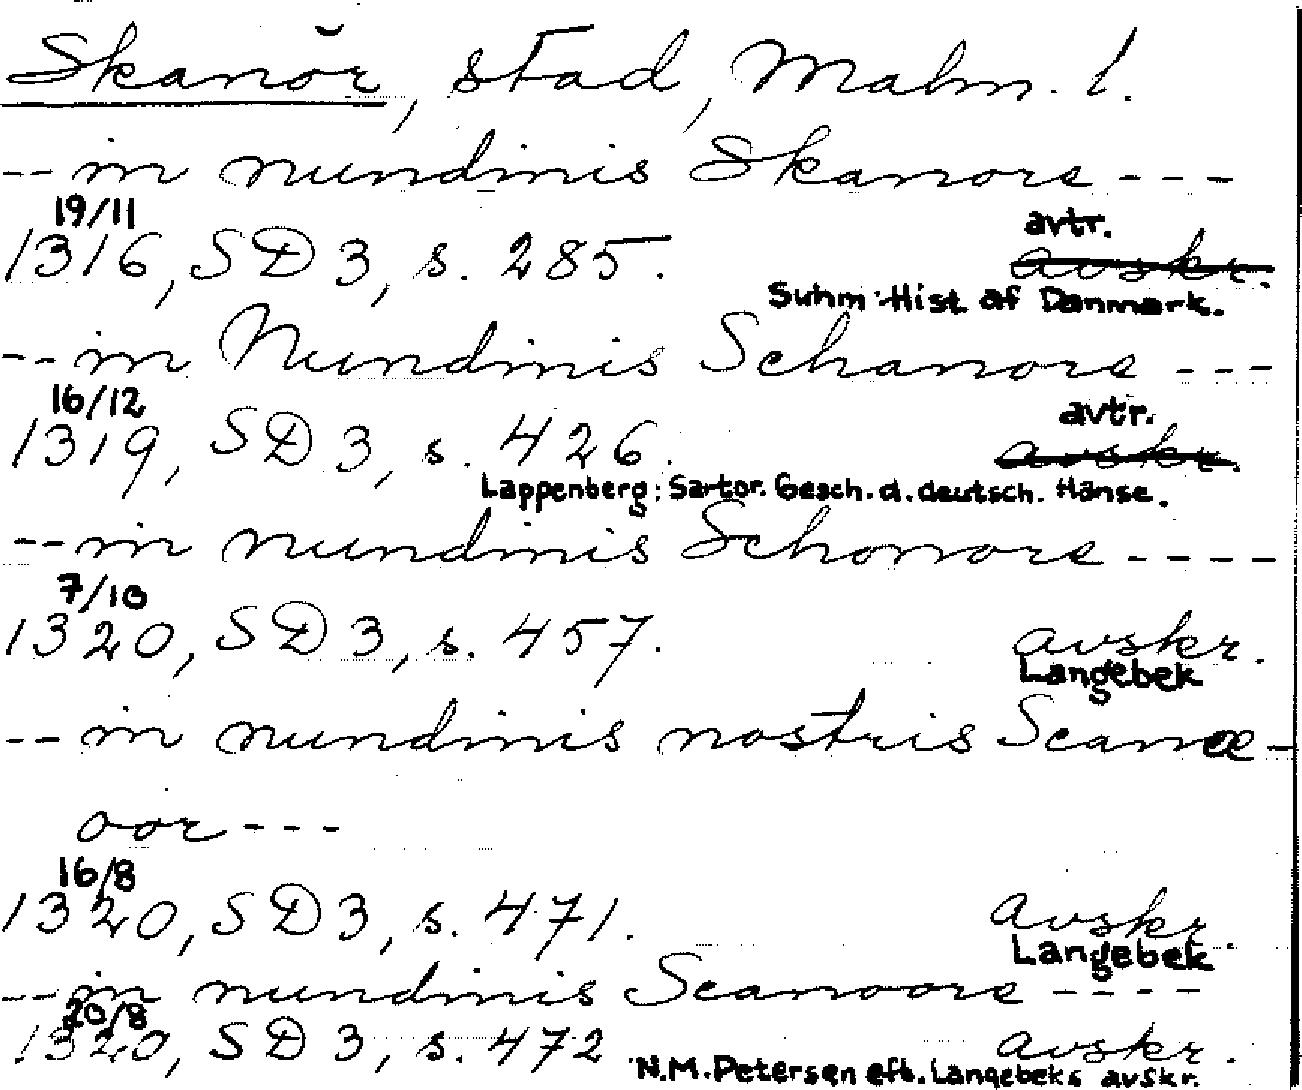 Skanör, stad, Malm. l.
-- in nundinis Skanore ---
19/11
1316, SD 3, s. 285. avtr.
avskr.
Suhm: Hist. af Danmark.
-- in Nundinis Schanore ---
16/12
1319, SD 3, s. 426. avtr.
avskr.
Lappenberg: Sartor. Gesch. d. deutsch. Hanse.
-- in nundinis Schonore ----
7/10
1320, SD 3, s. 457. avskr.
Langebek
-- in nundinis nostris Scanæ-
oor ---
16/8
1320, SD 3, s. 471. avskr
Langebek
-- in nundinis Scanoore ----
20/8
1320, SD 3, s. 472 avskr.
N.M. Petersen eft. Langebeks avskr.